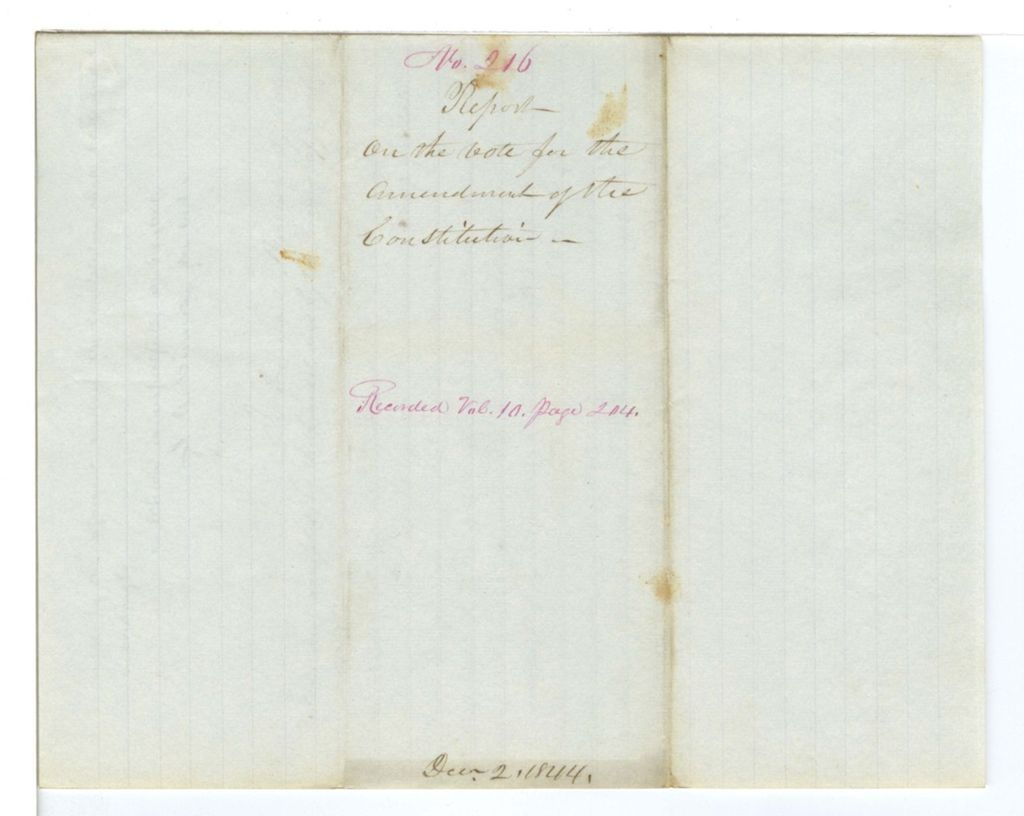 No. 216
Report
On the vote for the
Amendment of the
Constitution —
Recorded Vol. 10. Page 204.
Decr. 2, 1844.